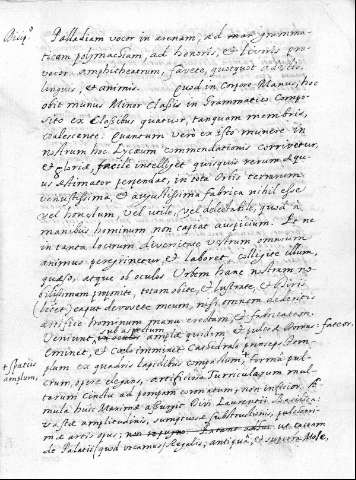 Palladiam vocor in arenam, ad mar gramma-
ticam polymachiam, ad honoris, et
amphitheatrum, favete, quotquot adestis
linguis, et animis. Quod in Corpore Manus, hoc
obit munus Minor Classis in Grammatices Compo-
sito ex Classibus quatuor, tanquam membris,
coalescente. Quantum vero ex isto munere in
nostrum hoc Lycaeum commendationis corrivetur,
et gloriae, facile intelliget quisquis rerum aequ-
us aestimator perpendat, in tota Orbis terrarum
venustissima, et augustissima fabrica nihil esse
vel honestum vel utile, vel delectabile, quod a
manibus hominum non capiat auspicium. Et ne
in tanta locorum diversitate vestrum omnium
animus peregrinetur, et laboret, colligite illum,
quaeso, atque ob oculos Urbem hanc nostram no-
bilissimam ponite, totam obite, et lustrate, et
(licet) caput devovete meum, nisi omnem
artifice hominum manu eredtam, et fabricatam.
Veniunt in oculos sub aspectum amplae quidem et pulcrae Domus: fateor.
Eminet, et Caelo imminet Cathedrale princeps Tem-
plum ex quadris lapidibus compactum, forma pul-
crum, opere elegans, artificiosa Turricularum mul-
tarum cinctu ad pompam ornatum; non inficior. AE-
mula huic Maximae assurgit Divi Laurentii Basilica:
vasta amplitudinis, sumptuosae substructionis, pulcerri-
mae artis opus;
de Palatii (quod vocamus) Regalis, antiqua, et superba Mole,
+ spatiis
amplum,